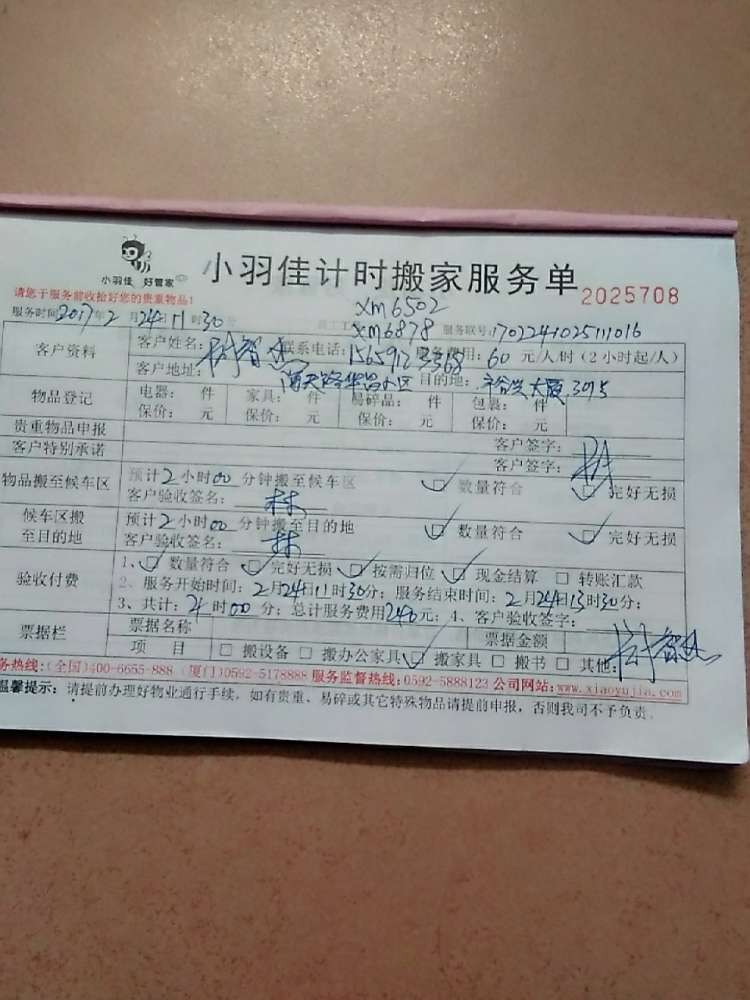 小羽佳 好管家
小羽佳计时搬家服务单
2025708
请您于服务前收拾好您的贵重物品!
xm6502
服务时间2017年2月24日11时30
xm6878 服务联号:170224102511016
客户资料
客户姓名: 联系电话: 服务费用:60元/人/时(2小时起/人)
客户地址: 目的地:
物品登记
电器: 件 家具: 件 易碎品: 件 包裹: 件
保价: 元 保价: 元 保价: 元 保价: 元
贵重物品申报
客户签字:
客户特别承诺
客户签字:
物品搬至候车区
预计2小时00分钟搬至候车区 数量符合 完好无损
客户验收签名:林
候车区搬至目的地
预计2小时00分钟搬至目的地 数量符合 完好无损
客户验收签名:林
验收付费
1、数量符合 完好无损 按需归位 现金结算 转账汇款
2、服务开始时间:2月24日11时30分;服务结束时间:2月24日13时30分;
3、共计:4时00分;总计服务费用240元;4、客户验收签字:
票据栏
票据名称 票据金额
项 目 搬设备 搬办公家具 搬家具 搬书 其他:
务热线:(全国)400-6655-888 (厦门)0592-5178888 服务监督热线:0592-5888123 公司网站:www.xiaoyujia.com
温馨提示:请提前办理好物业通行手续,如有贵重、易碎或其它特殊物品请提前申报,否则我司不予负责.